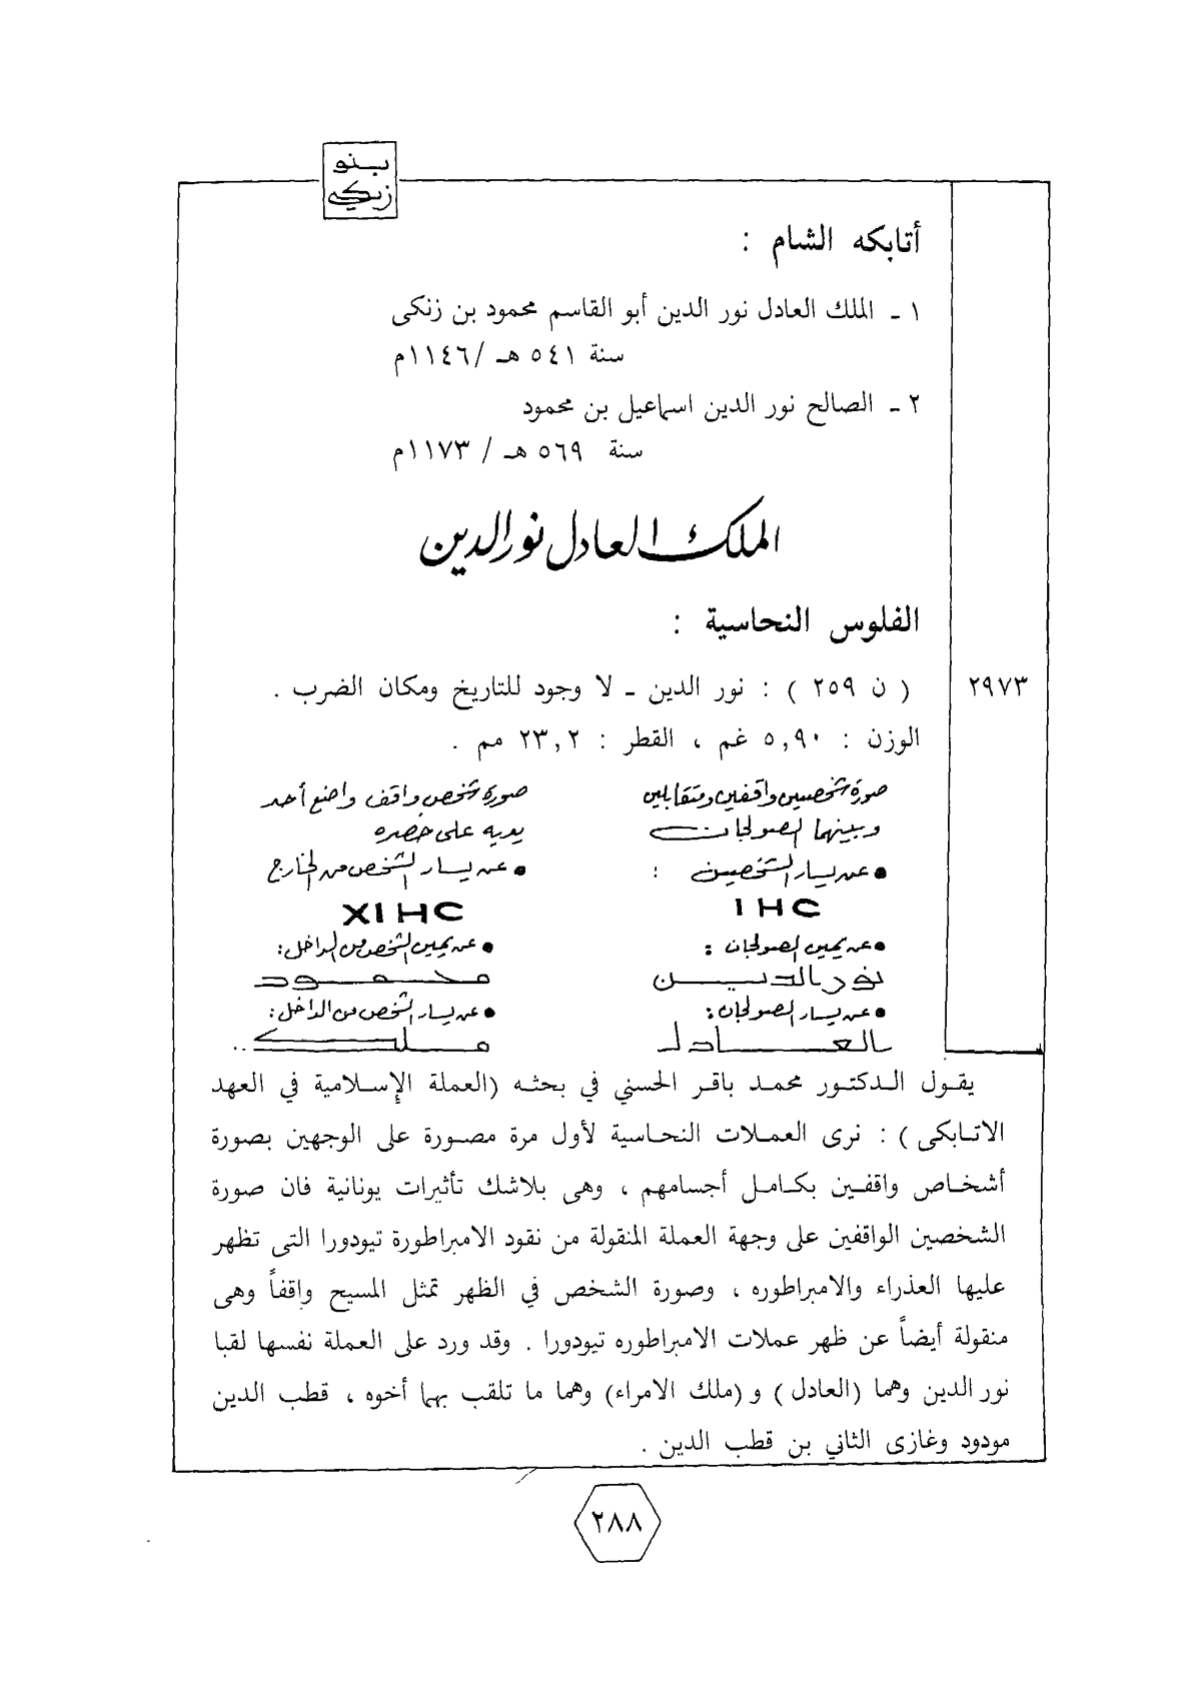 بنو
زنكي
أتابكه الشام :
١ ـ الملك العادل نور الدين أبو القاسم محمود بن زنكى
سنة ٥٤١ هـ /١١٤٦م
٢ ـ الصالح نور الدين اسماعيل بن محمود
سنة ٥٦٩ هـ / ١١٧٣م
الملك العادل نور الدين
الفلوس النحاسية :
٢٩٧٣
( ن ٢٥٩ ) : نور الدين ـ لا وجود للتاريخ ومكان الضرب .
الوزن : ٥,٩٠ غم ، القطر : ٢٣,٢ مم .
صورة شخصين واقفين ومتقابلين
وبينهما الصولجان
● عن يسار الشخصين :
IHC
● عن يمين الصولجان :
نور الدين
● عن يسار الصولجان :
العادل
صورة شخص واقف واضع أحد
يديه على خصره
● عن يسار الشخص من الخارج
XIHC
● عن يمين الشخص من الداخل :
محمود
● عن يسار الشخص من الداخل :
ملك ..
يقول الدكتور محمد باقر الحسني في بحثه (العملة الإسلامية في العهد
الاتابكى ) : نرى العملات النحاسية لأول مرة مصورة على الوجهين بصورة
أشخاص واقفين بكامل أجسامهم ، وهى بلاشك تأثيرات يونانية فان صورة
الشخصين الواقفين على وجهة العملة المنقولة من نقود الامبراطورة تيودورا التى تظهر
عليها العذراء والامبراطوره ، وصورة الشخص في الظهر تمثل المسيح واقفاً وهى
منقولة أيضاً عن ظهر عملات الامبراطوره تيودورا . وقد ورد على العملة نفسها لقبا
نور الدين وهما (العادل ) و (ملك الامراء) وهما ما تلقب بهما أخوه ، قطب الدين
مودود وغازى الثاني بن قطب الدين .
٢٨٨